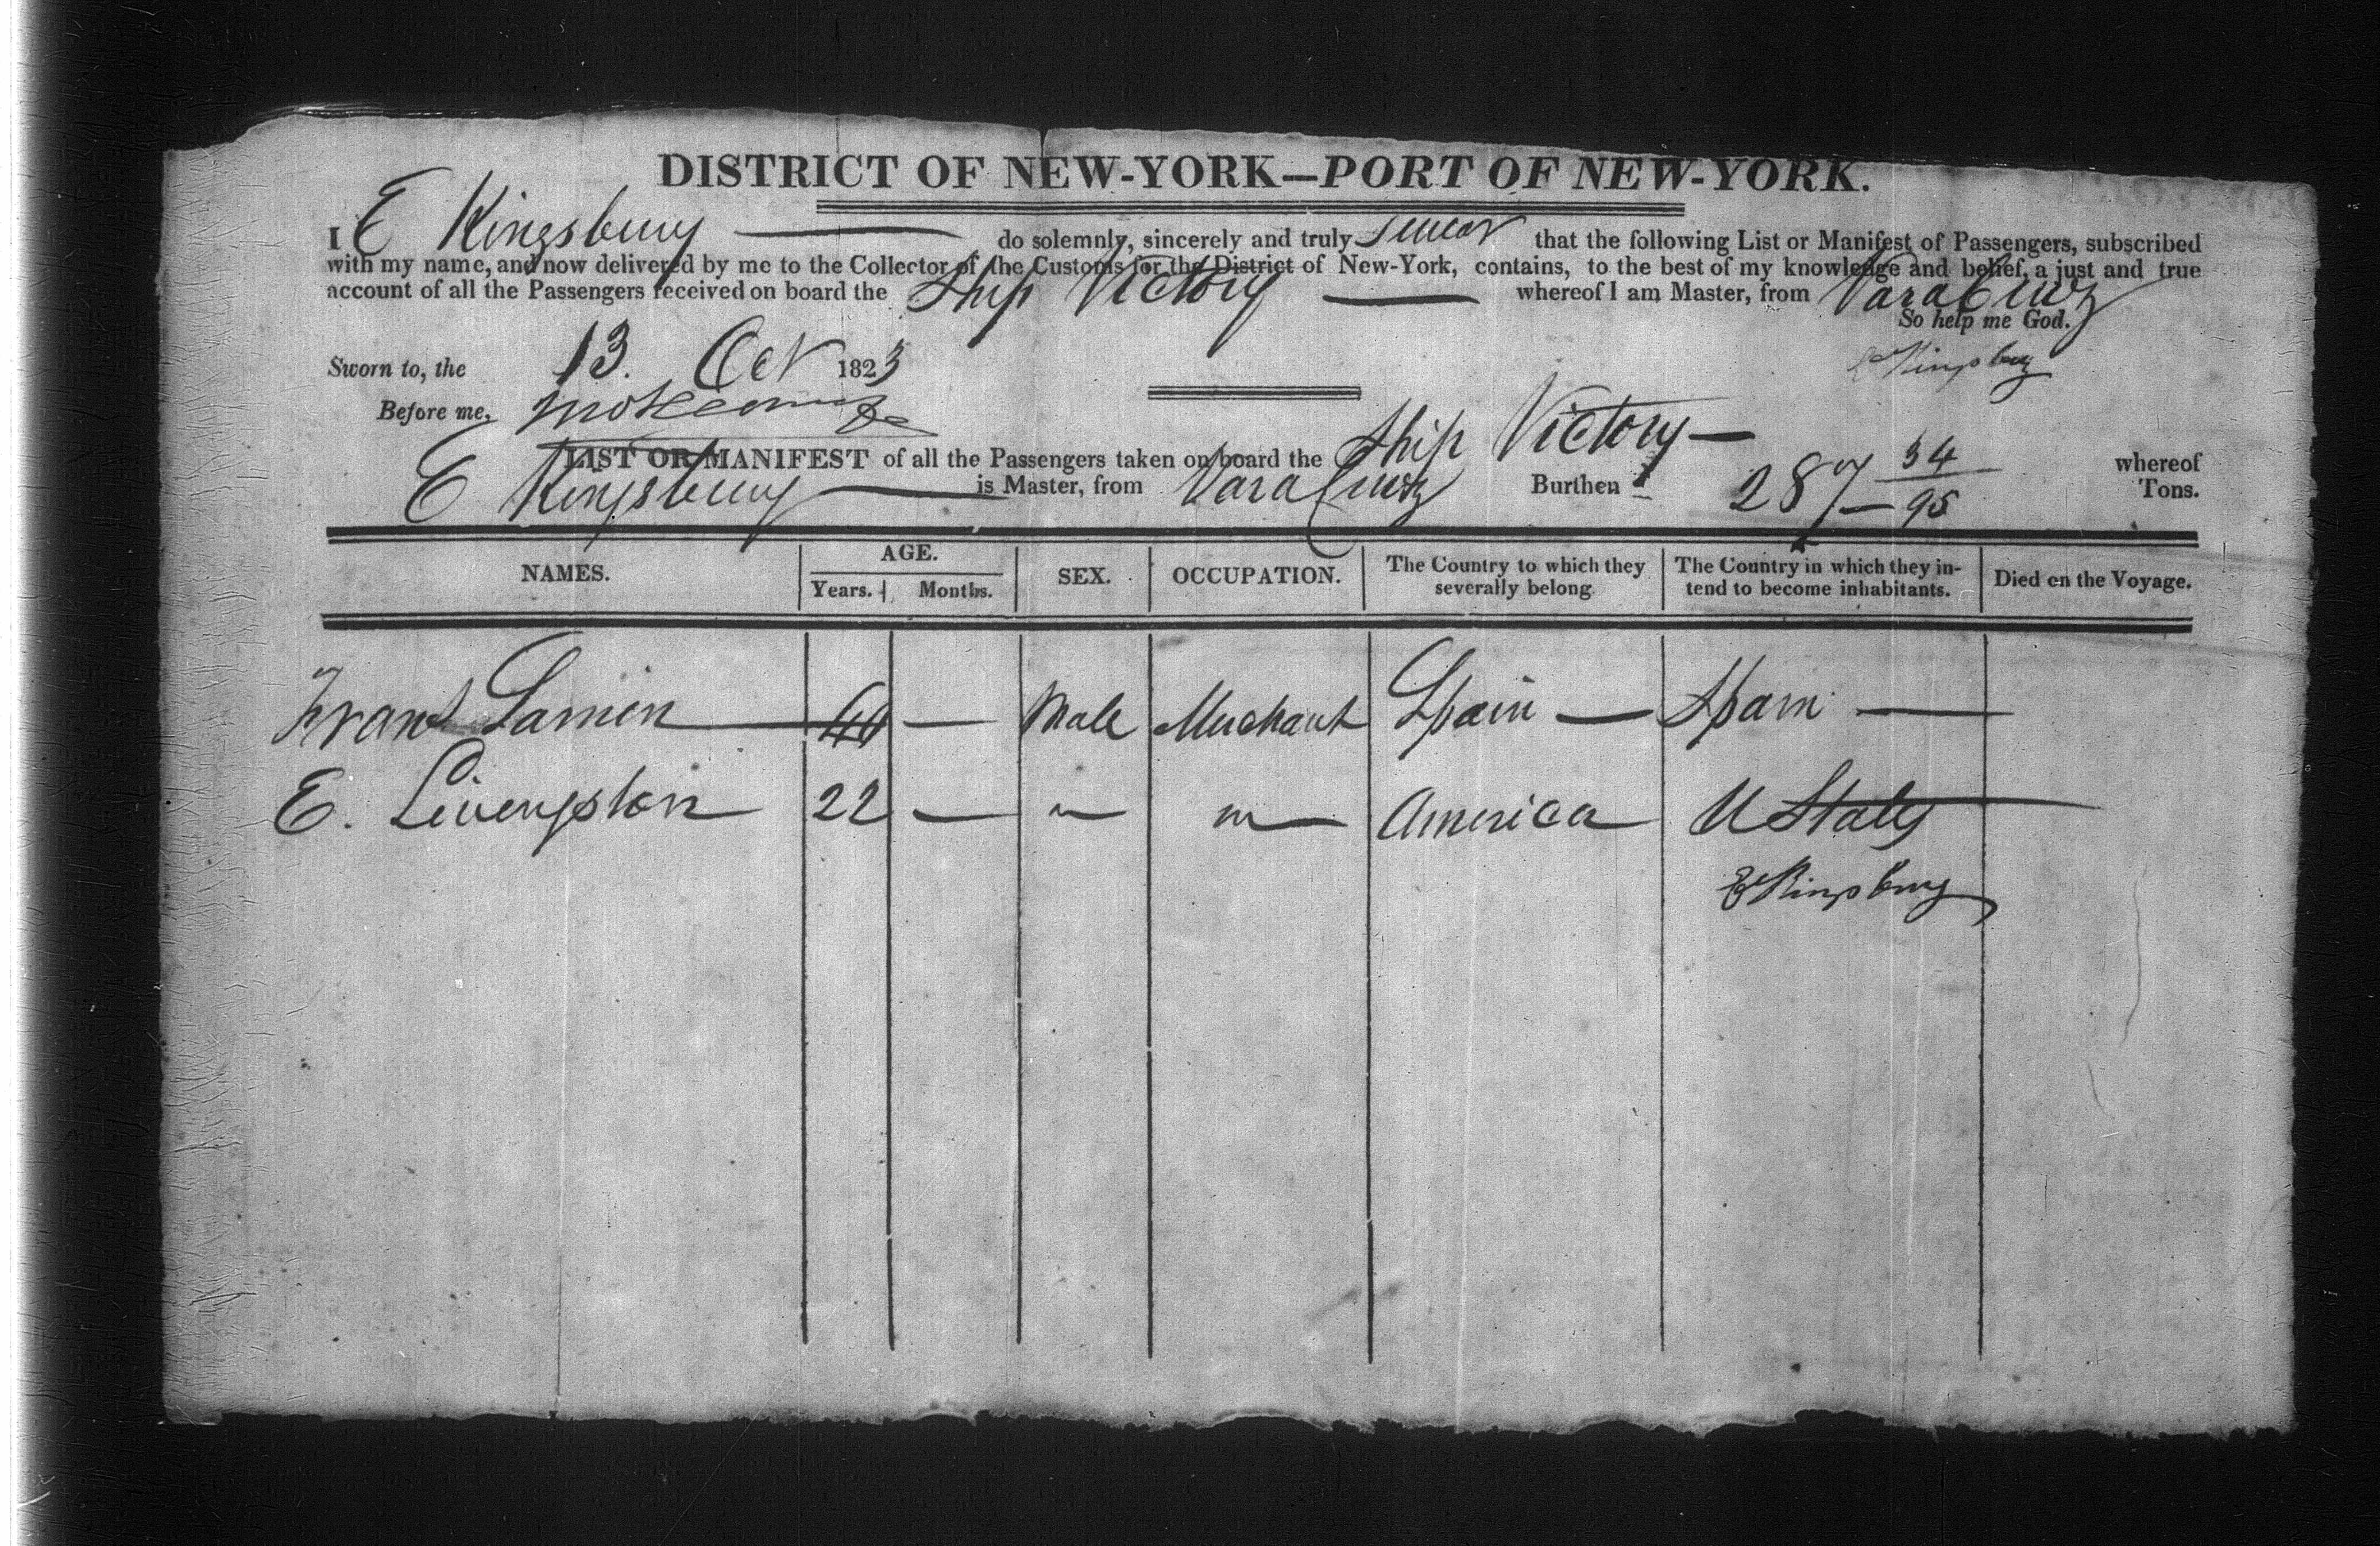 DISTRICT OF NEW-YORK—PORT OF NEW-YORK.
I E Kingsbury — do solemnly, sincerely and truly swear that the following List or Manifest of Passengers, subscribed
with my name, and now delivered by me to the Collector of the Customs for the District of New-York, contains, to the best of my knowledge and belief, a just and true
account of all the Passengers received on board the Ship Victory — whereof I am Master, from Vara Cruz
So help me God.
Sworn to, the 13. Oct 1823
E Kingsbury
Before me,
LIST OR MANIFEST of all the Passengers taken on board the Ship Victory — whereof
E Kingsbury — is Master, from Vara Cruz Burthen 287 — 34/95 Tons.
NAMES. AGE. Years. Months. SEX. OCCUPATION. The Country to which they severally belong The Country in which they intend to become inhabitants. Died on the Voyage.
Lamin — — Male Merchant Spain — Spain —
E. Livengston 22 — " " — America — U States
E Kingsbury